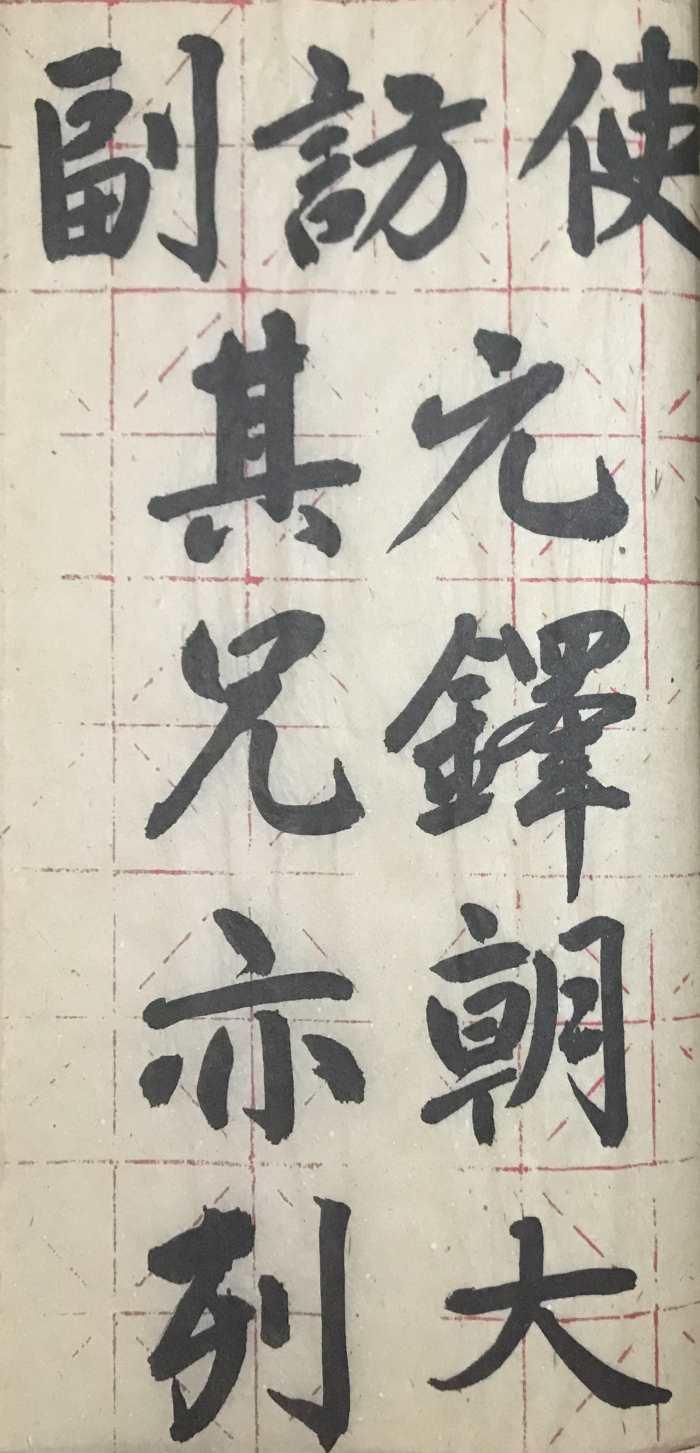 使元鐸朝大
訪其兄亦列
副